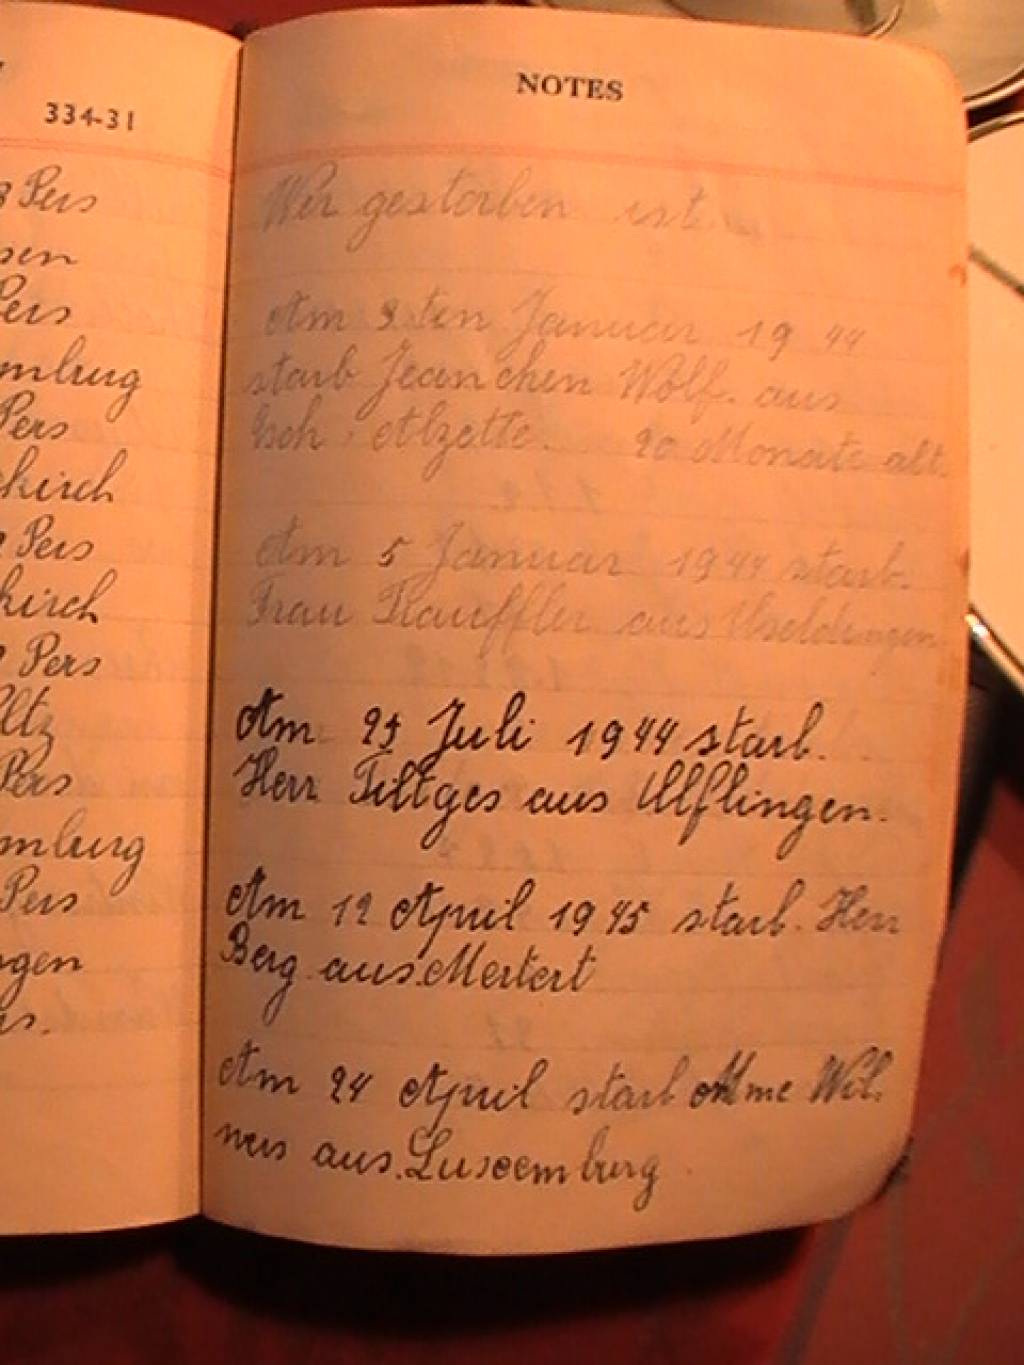 334-31
Pers
sen
Pers
mburg
Pers
kirch
Pers
kirch
Pers
ltz
Pers
mburg
Pers
ngen
rs.
NOTES
Wer gestorben ist
Am 3 ten Januar 1944
starb Jeanchen Wolf. aus
Esch. Alzette. 20 Monate alt.
Am 5 Januar 1944 starb.
Frau Kauffler aus Useldingen
Am 25 Juli 1944 starb.
Herr Tiltges aus Ulflingen.
Am 12 April 1945 starb. Herr
Berg aus Mertert
Am 24 April starb Mme Wil.
mes aus. Luxemburg